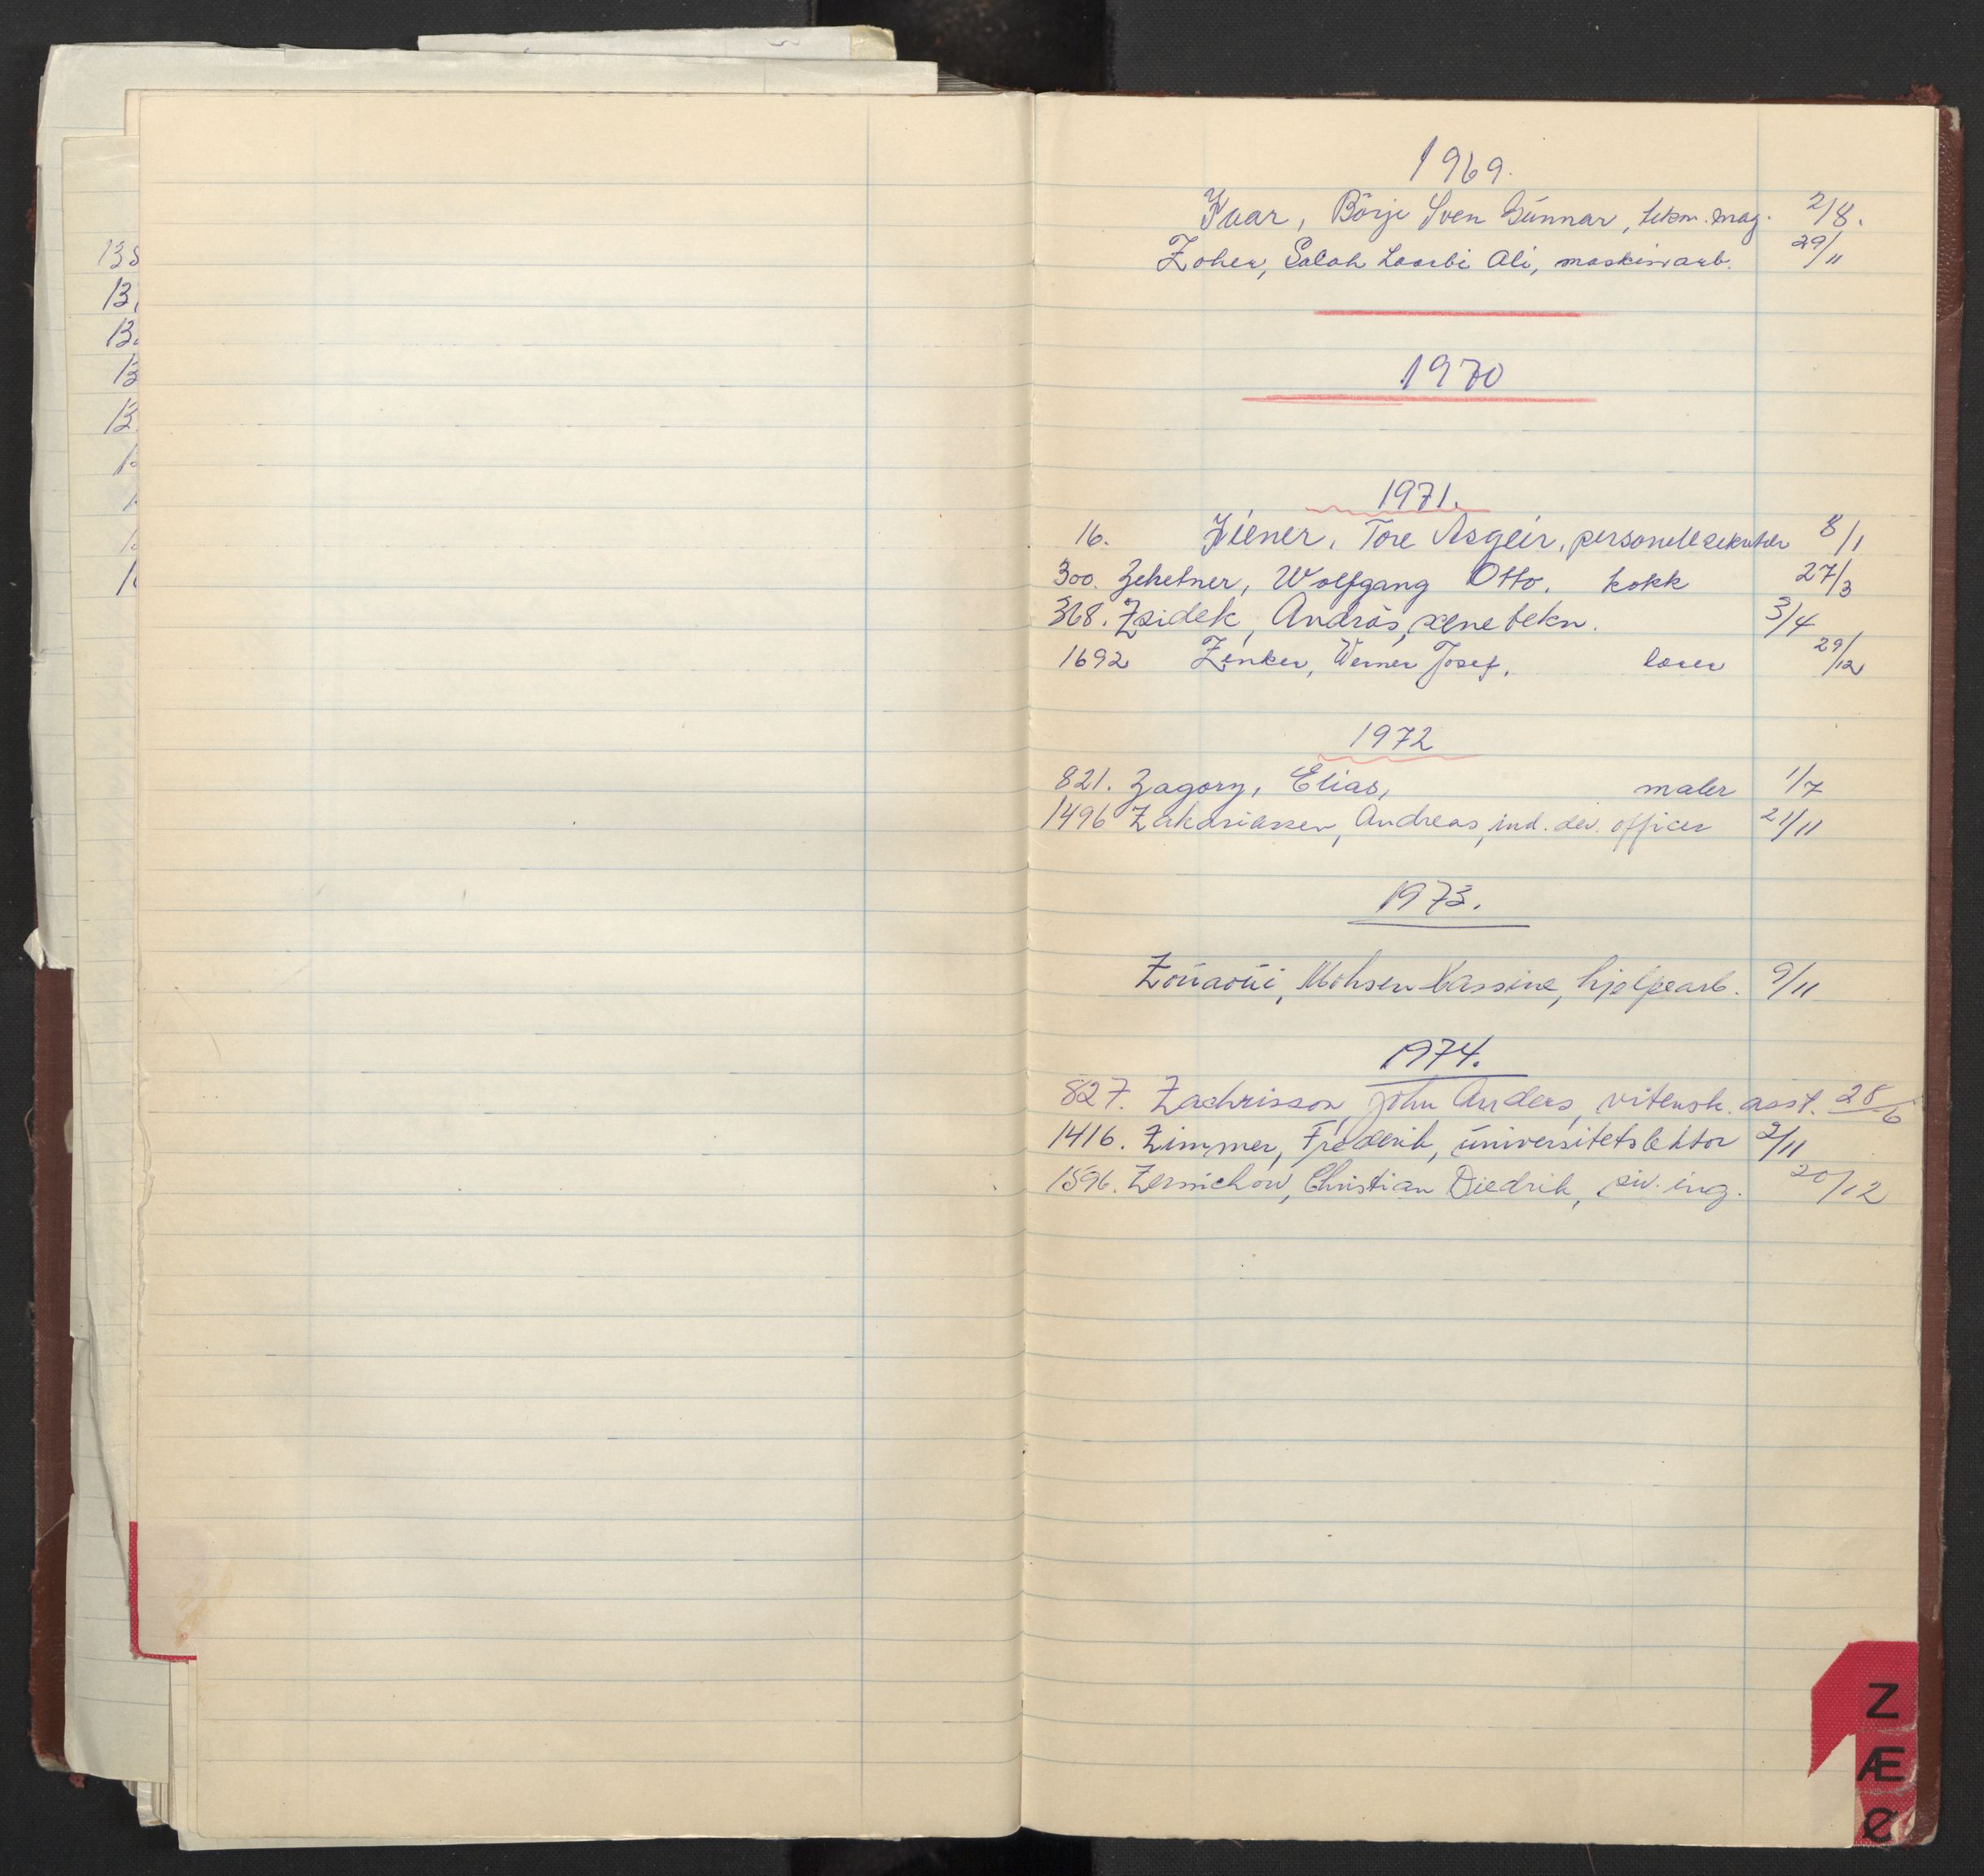 138
13
13
13
13
1969.
Kvar, Börje Sven Gunnar, tekn. mag. 2/8.
Zoher, Salah Laarbi Ali, maskinarb. 29/11
1970
1971.
16. Ziener, Tore Asgeir, personellsekretær 8/1
300. Zehetner, Wolfgang Otto, kokk 27/3
368. Zsidek, András, scenetekn. 3/4
1692 Zenker, Werner Josef, 29/12
1972
821. Zagory, Elias, maler 1/7
1496 Zakariassen, Andreas, ind. dev. officer 21/11
1973.
Zouaoui, Mohsen Yassine, hjelpearb. 9/11
1974.
827. Zachrisson, John Anders, vitensk. asst. 28/6
1416. Zimmer, Frederik, universitetslektor 2/11
1596. Zernichow, Christian Diedrik, siv. ing. 20/12
Z
Æ
Ø